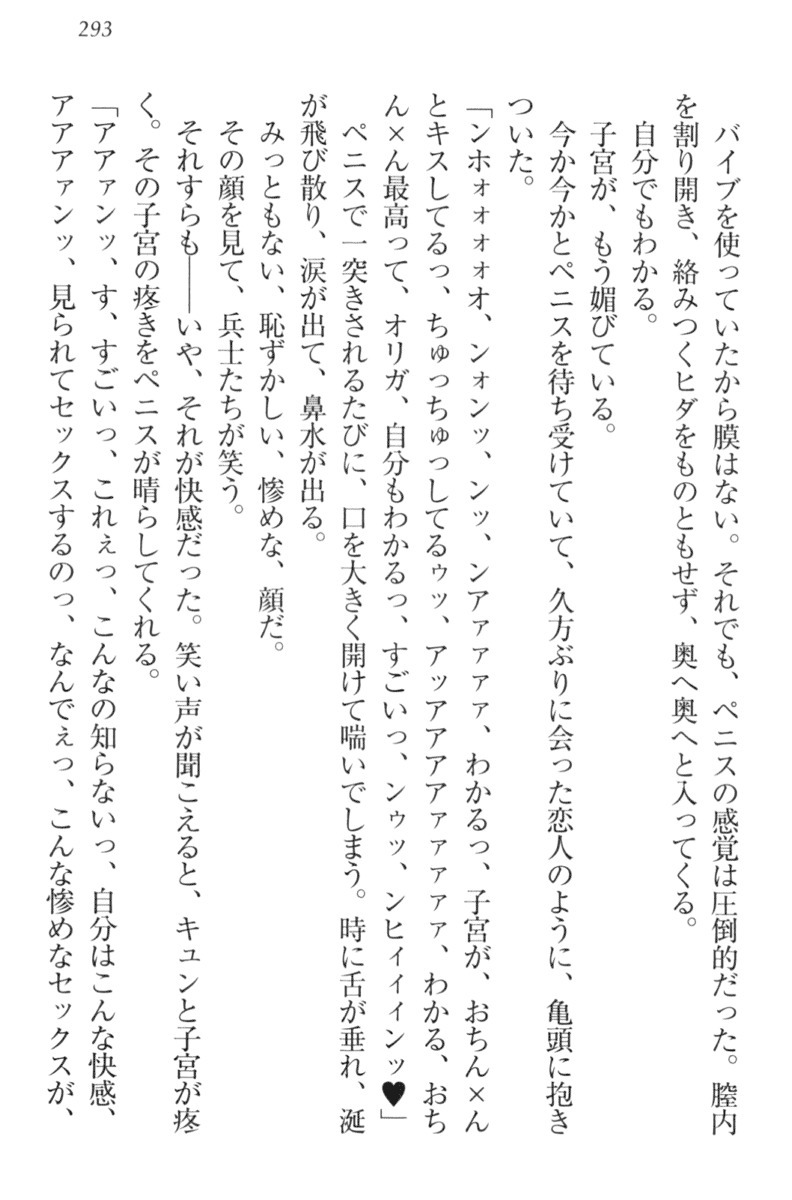 293
バイブを使っていたから膜はない。それでも、ペニスの感覚は圧倒的だった。膣内
を割り開き、絡みつくヒダをものともせず、奥へ奥へと入ってくる。
自分でもわかる。
子宮が、もう媚びている。
今か今かとペニスを待ち受けていて、久方ぶりに会った恋人のように、亀頭に抱き
ついた。
「ンホォォォォオ、ンォンッ、ンッ、ンアァァァァ、わかるっ、子宮が、おちん×ん
とキスしてるっ、ちゅっちゅっしてるゥッ、アッアアアアァァァァァ、わかる、おち
ん×ん最高って、オリガ、自分もわかるっ、すごいっ、ンゥッ、ンヒィィィンッ♥」
ペニスで一突きされるたびに、口を大きく開けて喘いでしまう。時に舌が垂れ、涎
が飛び散り、涙が出て、鼻水が出る。
みっともない、恥ずかしい、惨めな、顔だ。
その顔を見て、兵士たちが笑う。
それすらも――いや、それが快感だった。笑い声が聞こえると、キュンと子宮が疼
く。その子宮の疼きをペニスが晴らしてくれる。
「アアァンッ、す、すごいっ、これぇっ、こんなの知らないっ、自分はこんな快感、
アアアァンッ、見られてセックスするのっ、なんでぇっ、こんな惨めなセックスが、